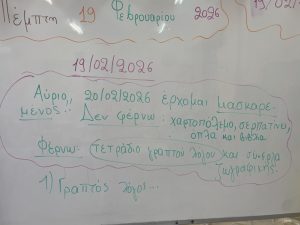 Πέμπτη 19 Φεβρουαρίου 2026
19/02/2026
Αύριο, 20/02/2026 έρχομαι μασκαρε-
μένος... Δεν φέρνω: χαρτοπόλεμο, σερπαντίνες,
όπλα και βέλη
Φέρνω: τετράδιο γραπτού λόγου και συνεργα
ζωγραφικής.
1) Γραπτός λόγος...